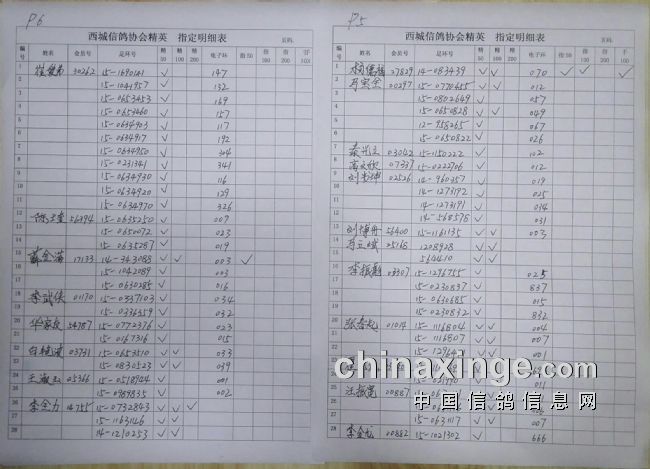 P6
西城信鸽协会精英 指定明细表
页码:
编号 姓名 会员号 足环号 精50 精100 精200 电子环 指50 指100 指200 千100
1 30262 15-1690141 ✓ 147
2 15-1041957 132
3 15-0653453 169
4 15-0653460 157
5 15-0634903 117
6 15-0634917 192
7 15-0634950 304
8 15-0231341 341
9 15-0634930 116
10 15-0634920 129
11 15-0634970 326
12 56394 15-0635250 ✓ 007
13 15-0650072 ✓ 023
14 15-0635287 ✓ 019
15 薛全瀛 17133 14-343088 ✓ ✓ 003 ✓
16 15-1042089 ✓ 003
17 15-0630285 ✓ 016
18 李武侠 01170 15-0337103 ✓ 034
19 15-0336559 ✓ 032
20 54787 15-0772376 ✓ 023
21 15-0167316 ✓ 015
22 03731 15-0653510 ✓ ✓ 033
23 15-0830523 ✓ ✓ 039
24 05366 15-0518944 ✓ 001
25 15-0989835 ✓ 002
26 李全力 14755 15-0732843 ✓ ✓ ✓
27 15-1163146 ✓ ✓
28 15-1210253 ✓ ✓
P5
西城信鸽协会精英 指定明细表
页码:
编号 姓名 会员号 足环号 精50 精100 精200 电子环 指50 指100 指200 千100
1 27829 14-083439 ✓ ✓ 070 ✓ ✓ ✓
2 马宝全 20297 15-0770655 ✓ ✓ 012
3 15-0802649 ✓ 057
4 15-0650828 ✓ ✓ 049
5 12-958265 ✓ 067
6 15-0650822 ✓ 026
7 秦兴立 03042 15-1150222 ✓ 102
8 高文欣 07337 15-0222706 ✓ 012
9 刘秀坤 02526 14-960357 ✓ 019
10 14-1273192 ✓ 025
11 14-1273191 ✓ 034
12 14-568578 ✓ 031
13 刘博舟 56400 15-1161135 ✓ ✓ 003
14 马立斌 25168 1208928 ✓
15 564410 ✓
16 李振魁 03307 15-1296755 ✓ 025
17 15-0230897 ✓ 837
18 15-0630685 ✓ 015
19 15-0230832 ✓ 832
20 张春龙 01014 15-1116804 ✓ ✓ 004
21 15-1116807 ✓ ✓ 007
22 ✓ 001
23
24 011
25 汪振宽 20887
26
27 15-0631117 ✓ 007
28 李金龙 20882 15-1021302 ✓ 666
chinaxinge.com
中国信鸽信息网